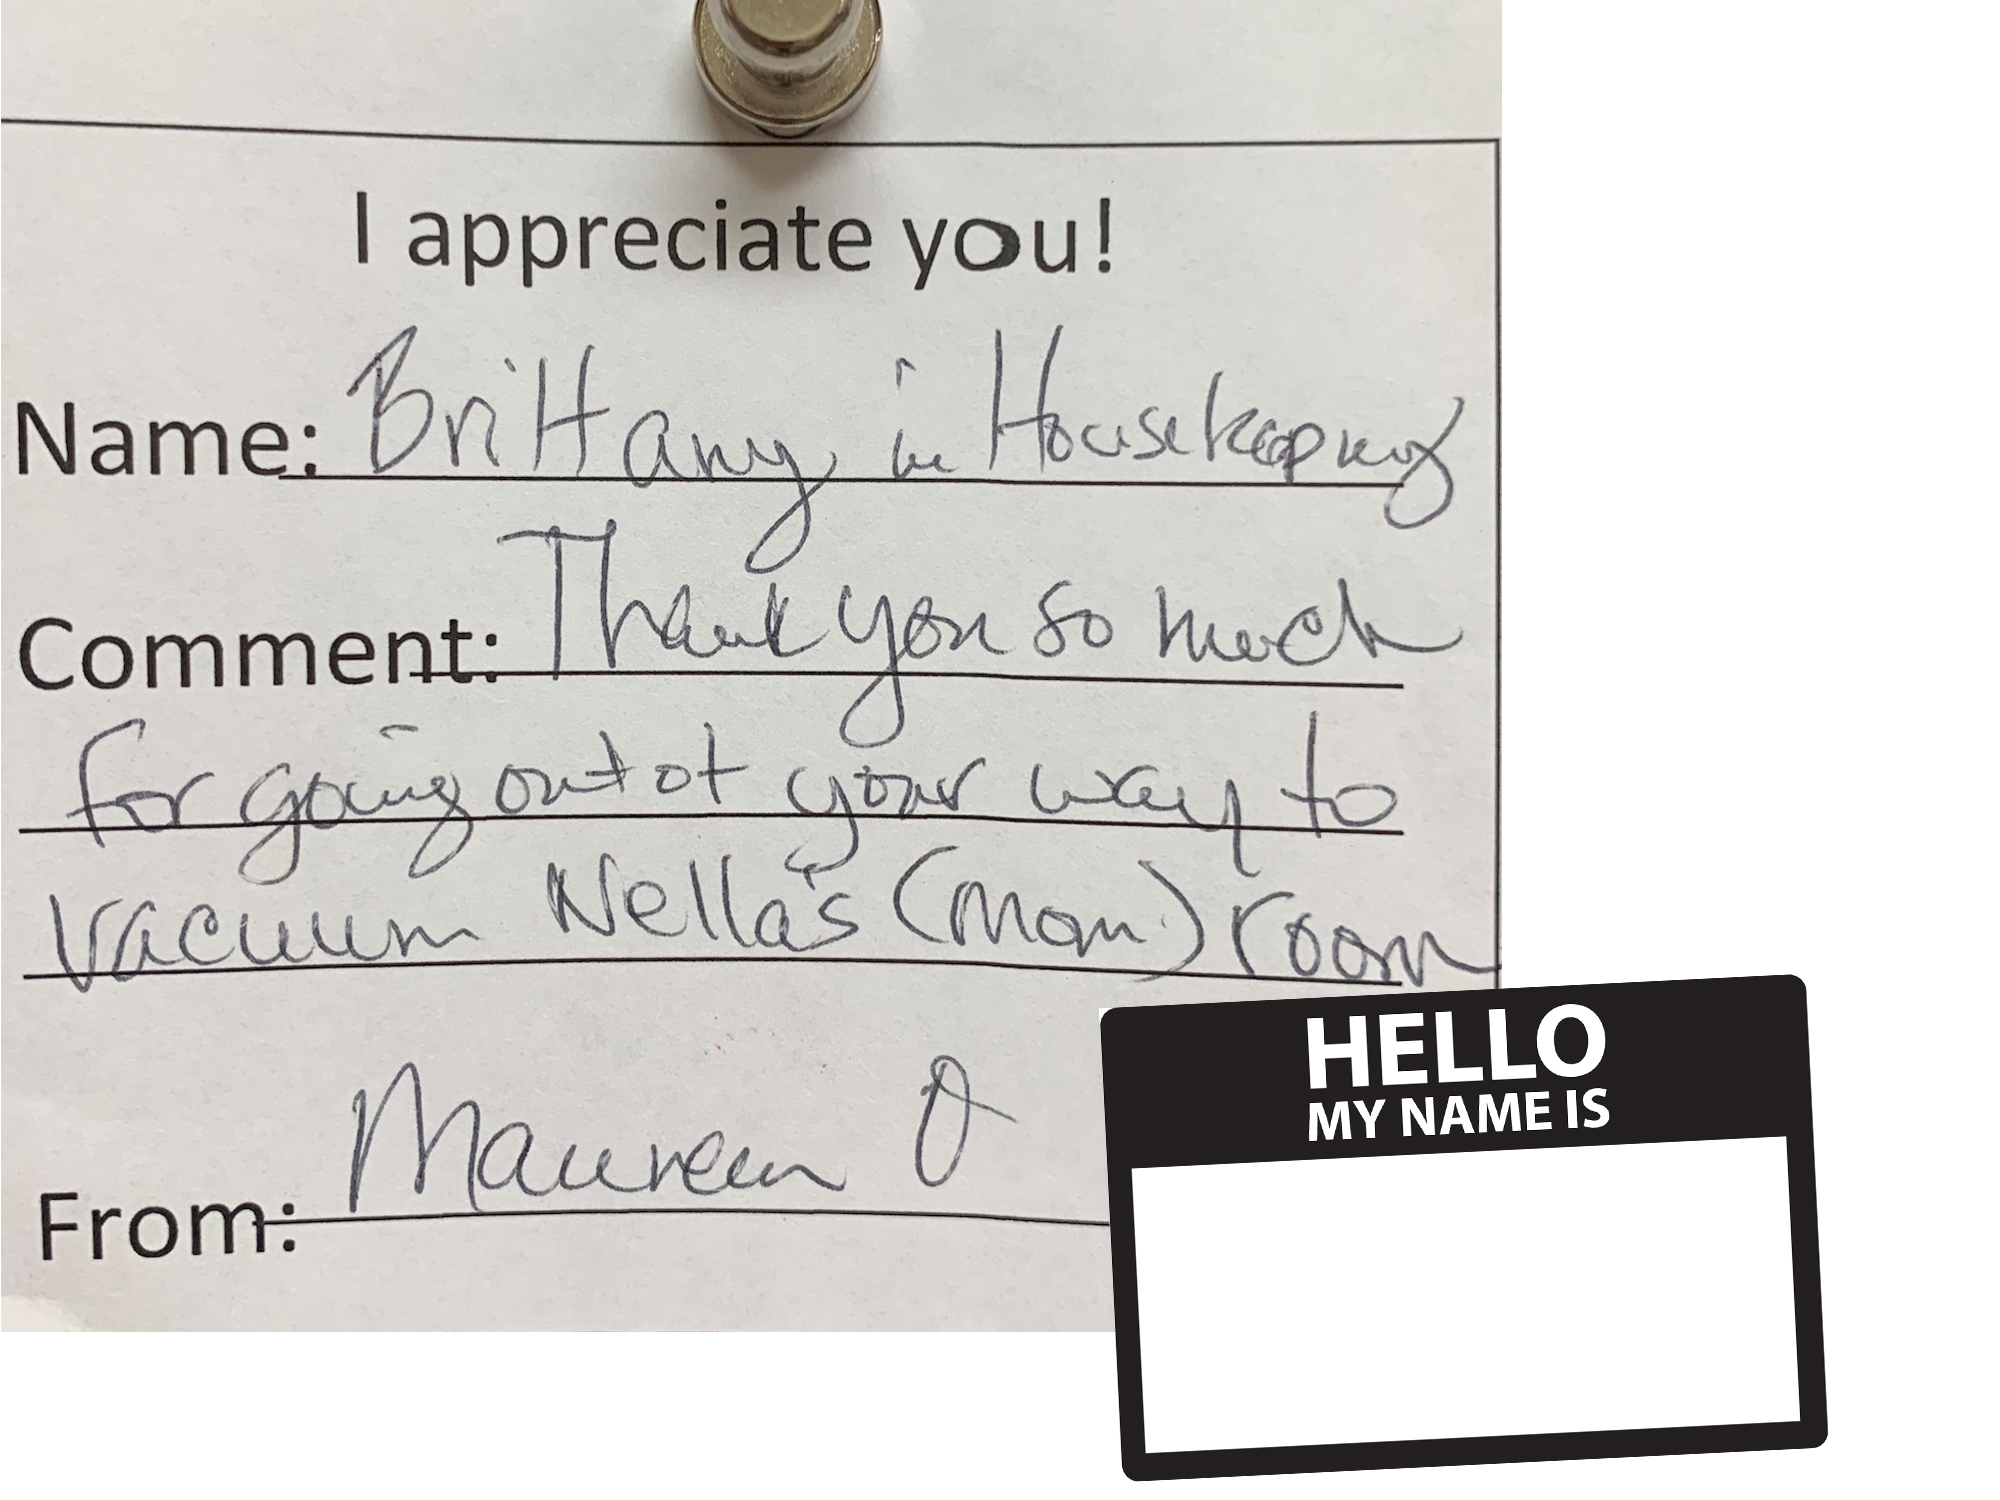 I appreciate you!
Name: Brittany in Housekeeping
Comment: Thank you so much
for going out of your way to
vacuum Nella's (mom) room
From: Maureen O
HELLO
MY NAME IS